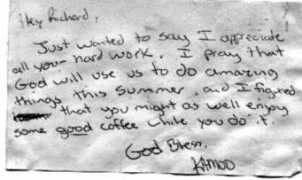 Hey Richard,
Just wanted to say I appreciate
all your hard work. I pray that
God will use us to do amazing
things this summer, and I figured
that you might as well enjoy
some good coffee while you do it.
God Bless,